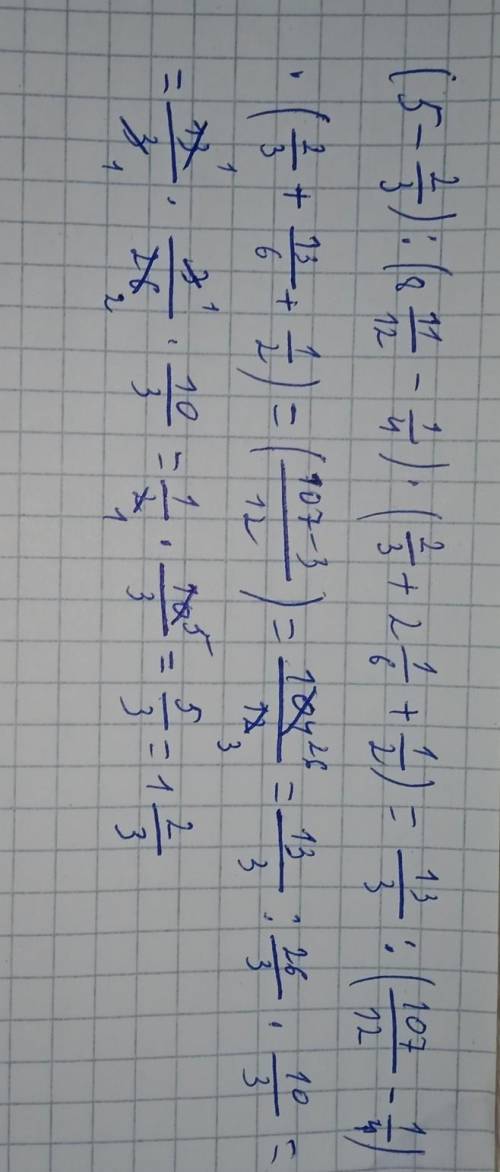 (5 - 2/3) : (8 11/12 - 1/4) · (2/3 + 2 1/6 + 1/2) = 13/3 : (107/12 - 1/4)
· (2/3 + 13/6 + 1/2) = (107-3/12) = 104 26/12 3 = 13/3 : 26/3 · 10/3 =
= 13 1/3 1 · 3 1/26 2 · 10/3 = 1/2 1 · 10 5/3 = 5/3 = 1 2/3